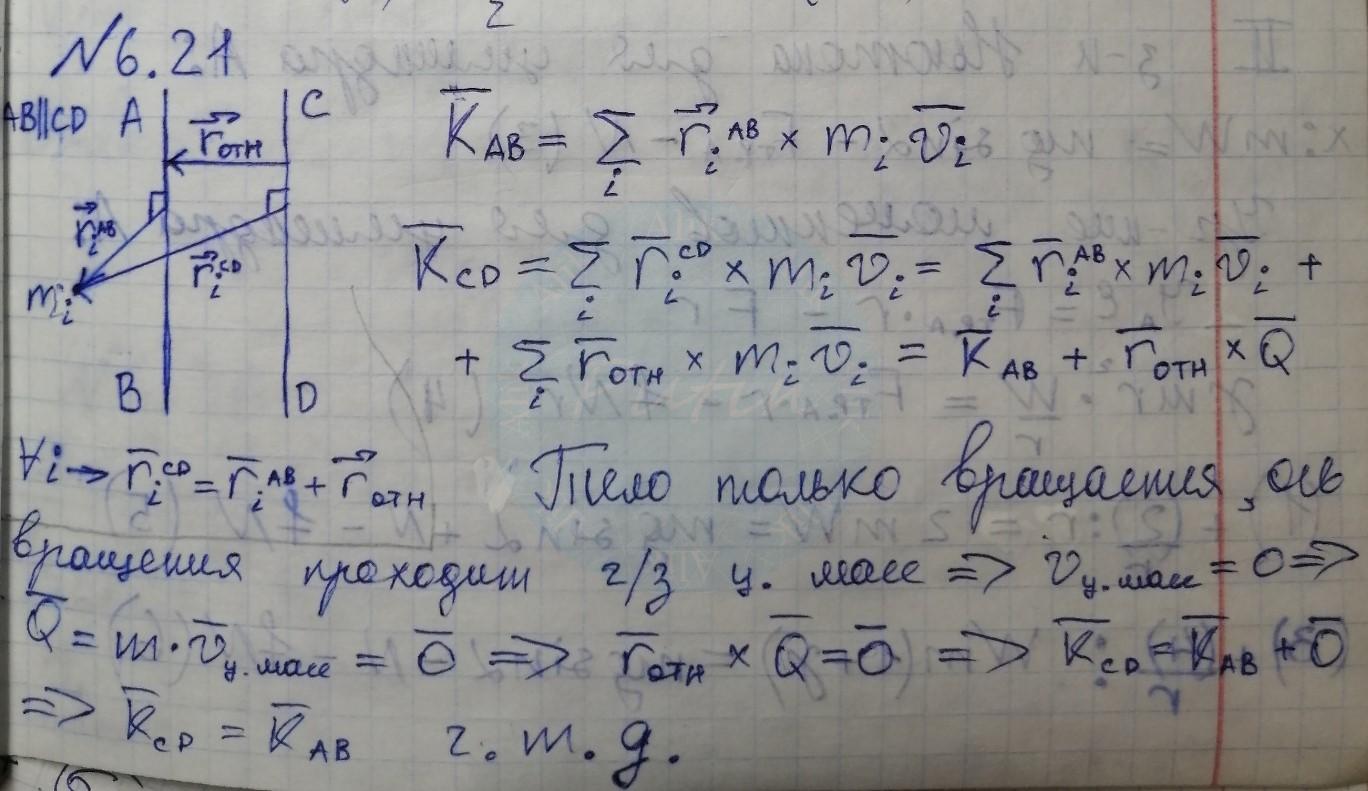 №6.21
AB||CD A C
r⃗отн
K̅AB = ∑i r⃗iAB × mi v̅i
r⃗iAB
r⃗iCD
mi
B D
K̅CD = ∑i r̅iCD × mi v̅i = ∑i r̅iAB × mi v̅i +
+ ∑i r̅отн × mi v̅i = K̅AB + r̅отн × Q̅
∀i → r̅iCD = r̅iAB + r⃗отн Тело только вращается, ось
вращения проходит ч/з ц. масс => v̅ц.масс = 0 =>
Q̅ = m · v̅ц.масс = 0̅ => r̅отн × Q̅ = 0̅ => K̅CD = K̅AB + 0̅
=> K̅CD = K̅AB ч. т. д.